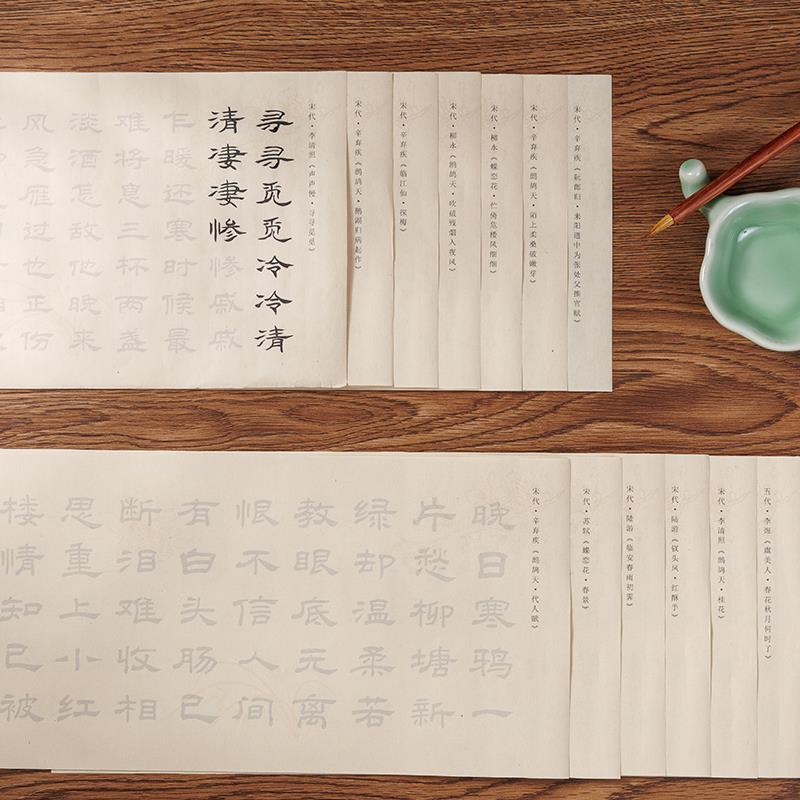 宋代·辛弃疾《阮郎归·耒阳道中为张处父推官赋》
宋代·辛弃疾《鹧鸪天·陌上柔桑破嫩芽》
宋代·柳永《蝶恋花·伫倚危楼风细细》
宋代·柳永《鹧鸪天·吹破残烟入夜风》
宋代·辛弃疾《临江仙·探梅》
宋代·辛弃疾《鹧鸪天·鹅湖归病起作》
宋代·李清照《声声慢·寻寻觅觅》
寻寻觅觅冷冷清
清凄凄惨惨戚戚
乍暖还寒时候最
难将息三杯两盏
淡酒怎敌他晚来
风急雁过也正伤
五代·李煜《虞美人·春花秋月何时了》
宋代·李清照《鹧鸪天·桂花》
宋代·陆游《钗头凤·红酥手》
宋代·陆游《临安春雨初霁》
宋代·苏轼《蝶恋花·春景》
宋代·辛弃疾《鹧鸪天·代人赋》
晚日寒鸦一
片愁柳塘新
绿却温柔若
教眼底无离
恨不信人间
有白头肠已
断泪难收相
思重上小红
楼情知已被